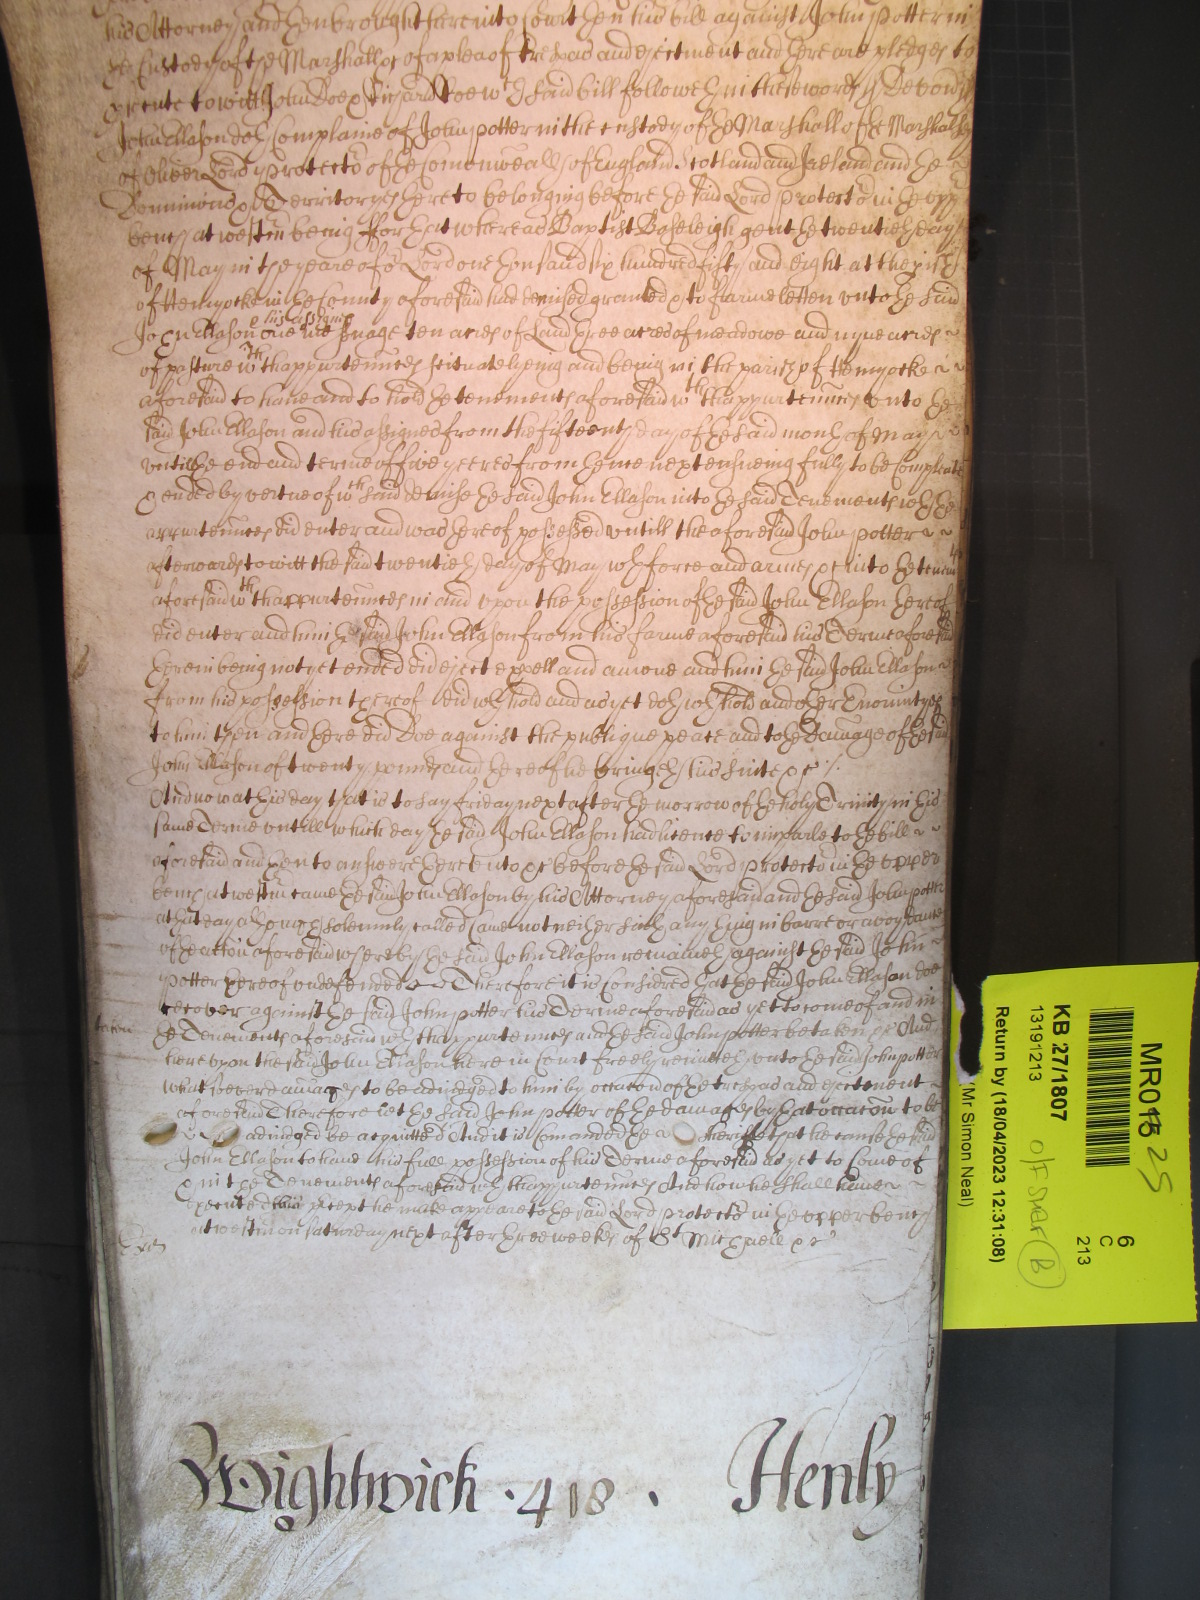 his Attorney and then brought here into Court then his bill against John Potter in
the Custody of the Marshall &c of a plea of trespas and ejectment and there are pledges to
prosecute to witt John Doe & Richard Roe wch said bill followeth in these words ss Devon ss
John Ellason doth Complaine of John Potter in the custody of the Marshall of the Marshalsey
of Oliver Lord Protector of the Comonwealth of England Scotland and Ireland and the
Dominions & Territoryes thereto belonging before the said Lord Protector in the upper
bench at westm being ffor that whereas Baptist Baseleigh gent the twentieth day
of May in the yeare of or Lord one thousand six hundred fifty and eight at the parish
of Hemyocke in the County aforesaid had demised granted & to farme letten unto the said
John Ellason & his assignes one messuage ten acres of Land three acres of meadowe and nyne acres
of pasture wth thappurtennces scituate lyeing and being in the parish of Hemyocke
aforesaid to have and to hold the tenements aforesaid wth thappurtennces unto the
said John Ellason and his assignes from the fifteenth day of the said month of May
untill the end and terme of five yeeres from thence next ensueing fully to be compleate
& ended by vertue of wch said demise the said John Ellason into the said Tenements wth the
appurtennces did enter and was thereof possessed untill the aforesaid John Potter
afterwards to witt the said twentieth day of May wth force and armes &c into the tenemts
aforesaid wth thappurtennces in and upon the possession of the said John Ellason thereof
did enter and him the said John Ellason from his farme aforesaid his Terme aforesaid
therein being not yet ended did eject expell and amove and him the said John Ellason
from his possession thereof did wthhold and as yet doth wthhold and other Enormityes
to him then and there did Doe against the publique peace and to the Damage of the said
John Ellason of twenty pounds and thereof he bringeth his suite &c
And now at this day that is to say friday next after the morrow of the holy Trinity in this
same Terme untill which day the said John Ellason had licence to imparle to the bill
aforesaid and then to answere thereunto &c before the said Lord Protector in the upper
bench at westm came the said John Ellason by his Attorney aforesaid and the said John Potter
at that day although solemnly called Came not neither saith any thing in barre or avoydance
of the action aforesaid whereby the said John Ellason remaineth against the said John
Potter thereof undefended Therefore it is Considred that the said John Ellason doe
recover against the said John Potter his Terme aforesaid as yet to come of and in
taken
the Tenements aforesaid wth thappurtennces and the said John Potter be taken &c And
hereupon the said John Ellason here in Court freely remitteth unto the said John Potter
whatsoever damages to be adiudged to him by occacon of the trespas and ejectment
aforesaid Therefore let the said John Potter of the damages by that occacon to be
adiudged be acquitted And it is Comanded the Sheriffe that he cause the said
John Ellason to have his full possession of his Terme aforesaid as yet to Come of
& in the Tenements aforesaid wth thappurtennces And how he shall have
executed this precept he make appeare to the said Lord Protector in the upper bench
at westm on Saturday next after three weekes of St Michaell &c
Wightwick · 418 · Henly
MR013 25
KB 27/1807
13191213
Return by (18/04/2023 12:31:08)
(Mr Simon Neal)
6
C
213
B